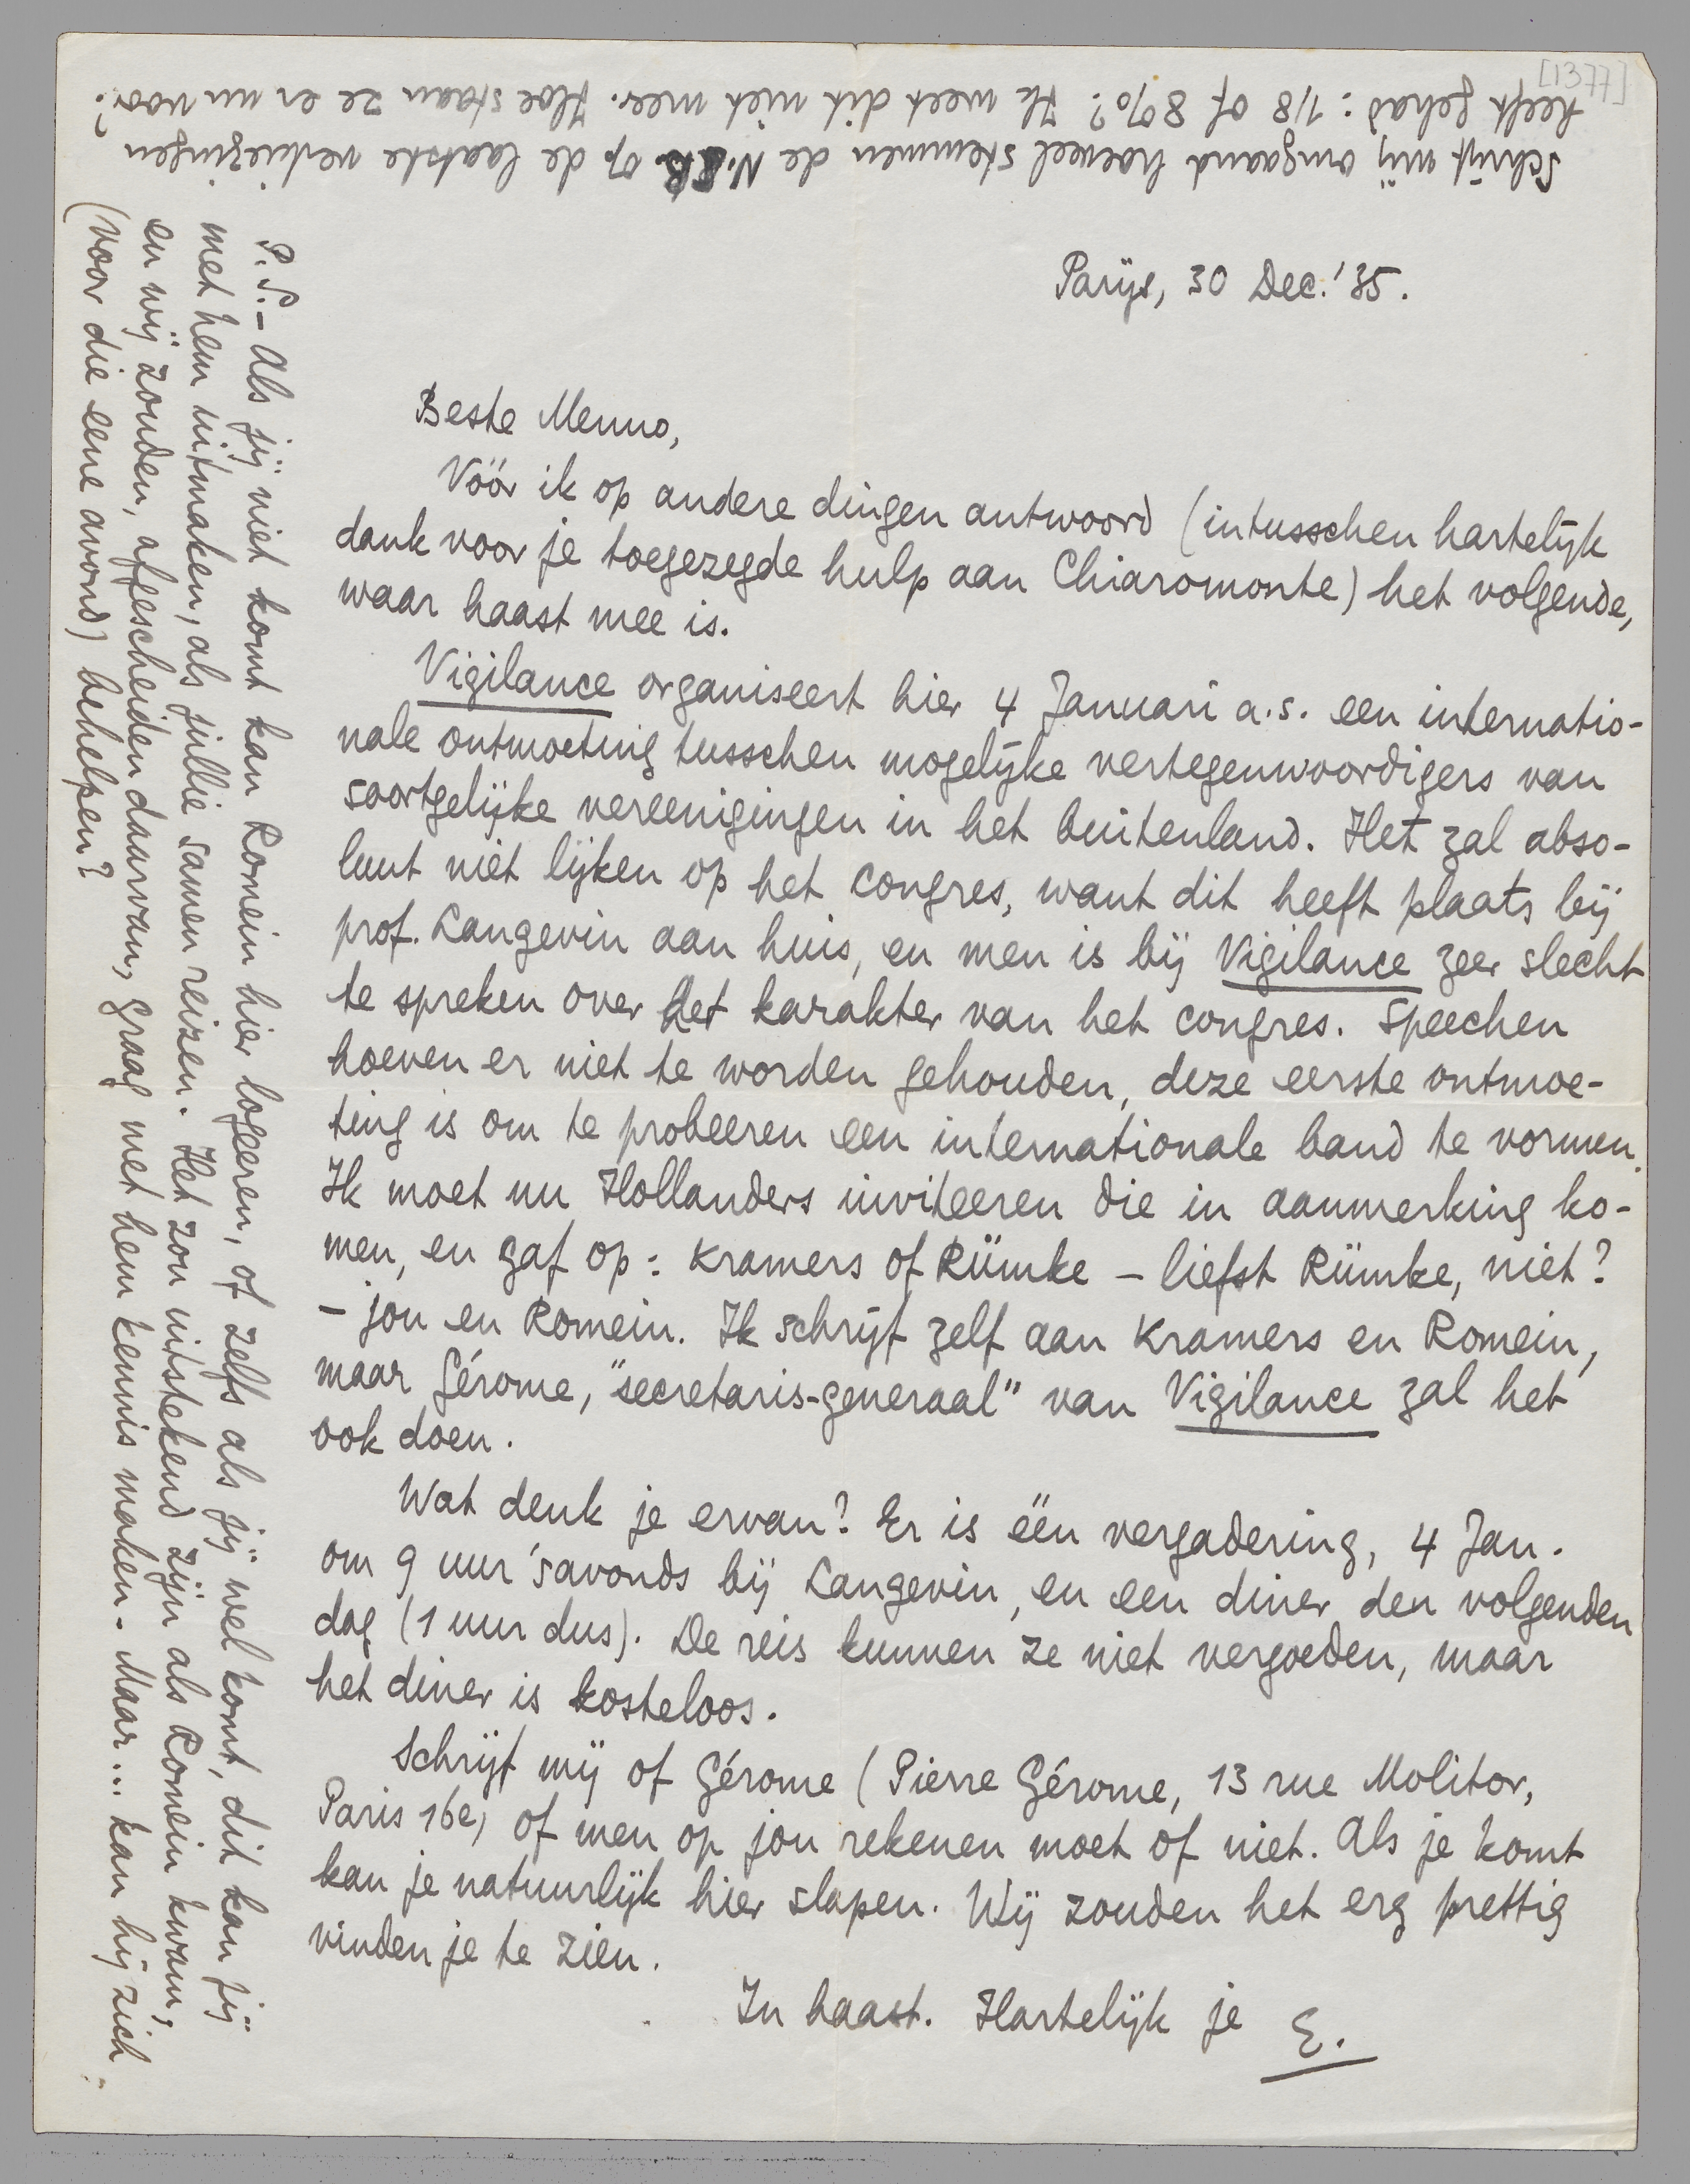 [1377]
Parijs, 30 Dec. '35.
Beste Menno,
Vóór ik op andere dingen antwoord (intusschen hartelijk
dank voor je toegezegde hulp aan Chiaromonte) het volgende,
waar haast mee is.
Vigilance organiseert hier 4 Januari a.s. een internatio-
nale ontmoeting tusschen mogelijke vertegenwoordigers van
soortgelijke vereenigingen in het buitenland. Het zal abso-
luut niet lijken op het congres, want dit heeft plaats bij
prof. Langevin aan huis, en men is bij Vigilance zeer slecht
te spreken over het karakter van het congres. Speechen
hoeven er niet te worden gehouden, deze eerste ontmoe-
ting is om te probeeren een internationale band te vormen.
Ik moet nu Hollanders inviteeren die in aanmerking ko-
men, en gaf op: Kramers of Rümke – liefst Rümke, niet?
– jou en Romein. Ik schrijf zelf aan Kramers en Romein,
maar Gérome, "secretaris-generaal" van Vigilance zal het
ook doen.
Wat denk je ervan? Er is één vergadering, 4 Jan.
om 9 uur 's avonds bij Langevin, en een diner den volgenden
dag (1 uur dus). De reis kunnen ze niet vergoeden, maar
het diner is kosteloos.
Schrijf mij of Gérome (Pierre Gérome, 13 rue Molitor,
Paris 16e) of men op jou rekenen moet of niet. Als je komt
kan je natuurlijk hier slapen. Wij zouden het erg prettig
vinden je te zien.
In haast. Hartelijk je E.
P.S. – Als jij niet komt kan Romein hier logeeren, of zelfs als jij wel komt, dit kan jij
met hem uitmaken, als jullie samen reizen. Het zou uitstekend zijn als Romein kwam,
en wij zouden, afgescheiden daarvan, graag met hem kennis maken. Maar... kan hij zich
(voor die eene avond) behelpen?
Schrijf mij omgaand hoeveel stemmen de N.S.B. op de laatste verkiezingen
heeft gehad: 1/8 of 8%? Ik weet dit niet meer. Hoe staan ze er nu voor?